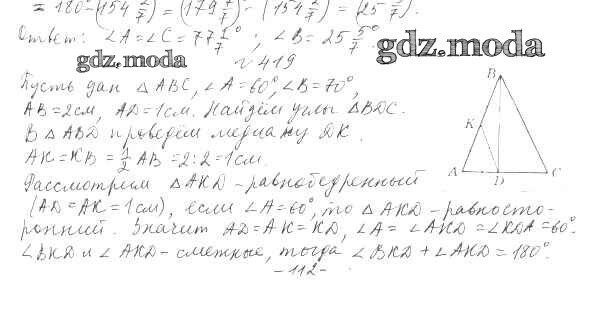 = 180° - (154 2/7) = (179 7/7) - (154 2/7) = (25 5/7).
Ответ: ∠A = ∠C = 77 1/7°; ∠B = 25 5/7°.
gdz.moda
gdz.moda
№ 419
Пусть дан △ABC, ∠A = 60°, ∠B = 70°,
AB = 2см, AD = 1см. Найдём углы △BDC.
В △ABD проведём медиану DK.
AK = KB = 1/2 AB = 2:2 = 1см.
Рассмотрим △AKD - равнобедренный
(AD = AK = 1см), если ∠A = 60°, то △AKD - равносто-
ронний. Значит AD = AK = KD, ∠A = ∠AKD = ∠KDA = 60°.
∠BKD и ∠AKD - смежные, тогда ∠BKD + ∠AKD = 180°.
- 112 -
B
K
A
D
C